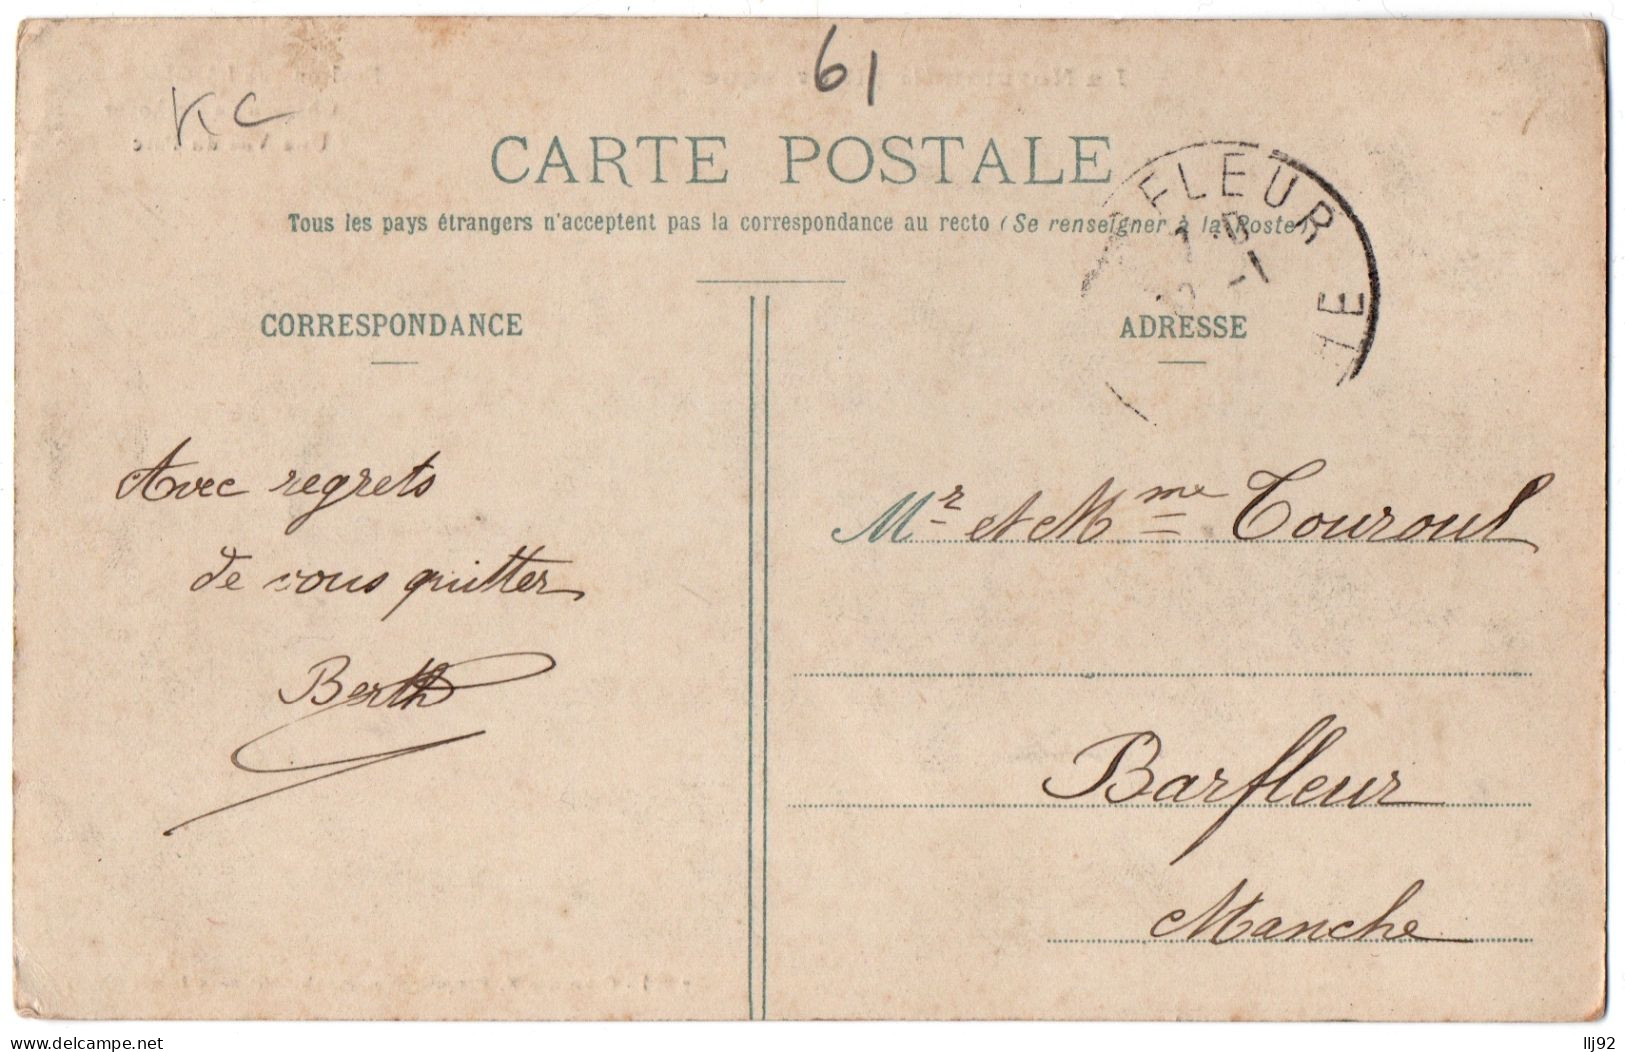 61
KC
CARTE POSTALE
Tous les pays étrangers n'acceptent pas la correspondance au recto (Se renseigner à la Poste)
FLEUR
CORRESPONDANCE
ADRESSE
Avec regrets
de vous quitter
Berth
Mr et Mme Touroul
Barfleur
Manche
llj92